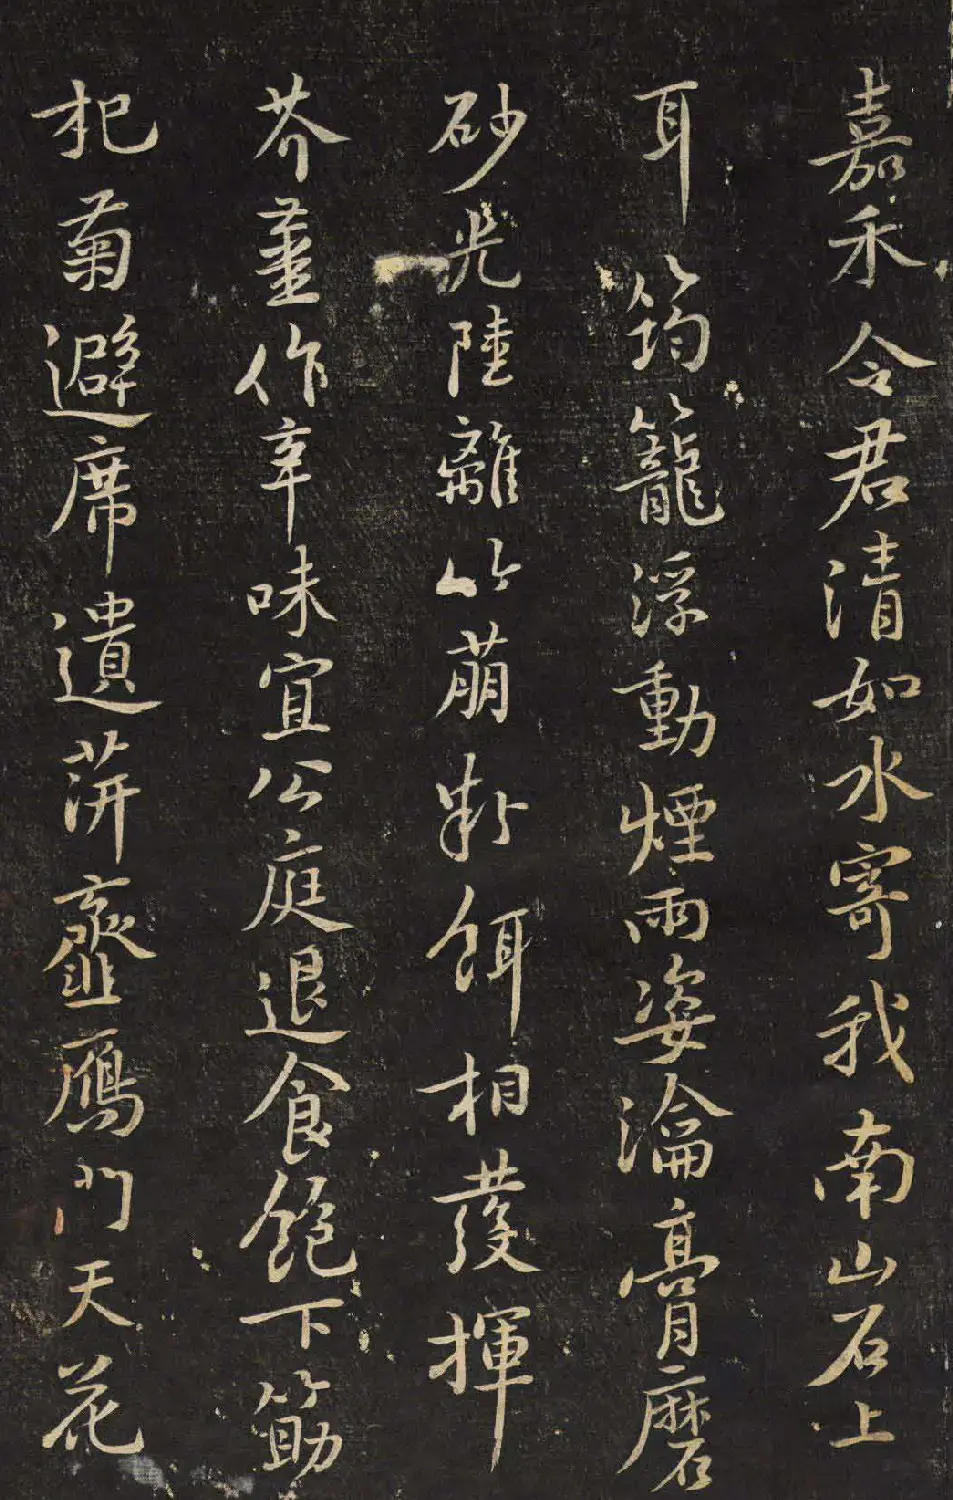 嘉禾令君清如水寄我南山石上
耳筠籠浮動煙雨姿瀹膏磨
砂光陸離竹萌粉餌相發揮
芥薑作辛味宜公庭退食飽下筯
杞菊避席遺蓱虀鴈門天花